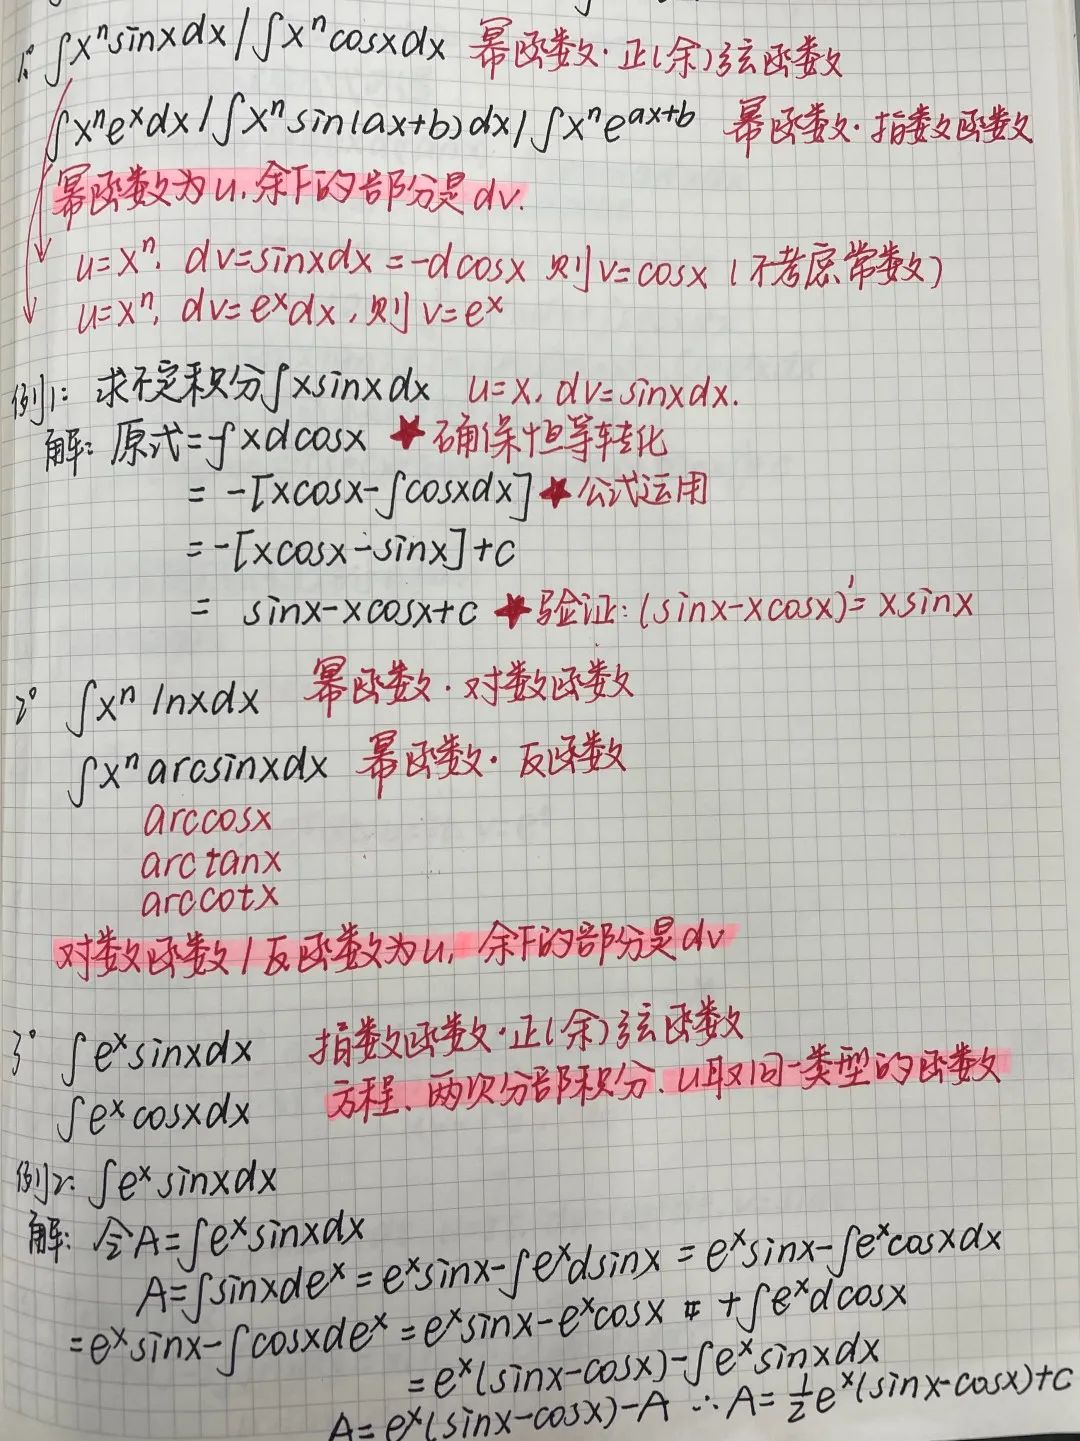 1° ∫xⁿsinxdx / ∫xⁿcosxdx 幂函数·正(余)弦函数
∫xⁿeˣdx / ∫xⁿsin(ax+b)dx / ∫xⁿeᵃˣ⁺ᵇ 幂函数·指数函数
幂函数为u,余下的部分是dv.
u=xⁿ, dv=sinxdx=-dcosx 则v=cosx (不考虑常数)
u=xⁿ, dv=eˣdx,则v=eˣ
例1: 求不定积分∫xsinxdx u=x, dv=sinxdx.
解: 原式=-∫xdcosx ★确保恒等转化
= -[xcosx-∫cosxdx] ★公式运用
= -[xcosx-sinx]+c
= sinx-xcosx+c ★验证: (sinx-xcosx)'=xsinx
2° ∫xⁿ lnxdx 幂函数·对数函数
∫xⁿ arcsinxdx 幂函数·反函数
arccosx
arctanx
arccotx
对数函数/反函数为u, 余下的部分是dv
3° ∫eˣsinxdx 指数函数·正(余)弦函数
∫eˣcosxdx 方程、两次分部积分、u取同一类型的函数
例2: ∫eˣsinxdx
解: 令A=∫eˣsinxdx
A=∫sinxdeˣ=eˣsinx-∫eˣdsinx=eˣsinx-∫eˣcosxdx
=eˣsinx-∫cosxdeˣ=eˣsinx-eˣcosx+∫eˣdcosx
=eˣ(sinx-cosx)-∫eˣsinxdx
A=eˣ(sinx-cosx)-A ∴A=½eˣ(sinx-cosx)+c